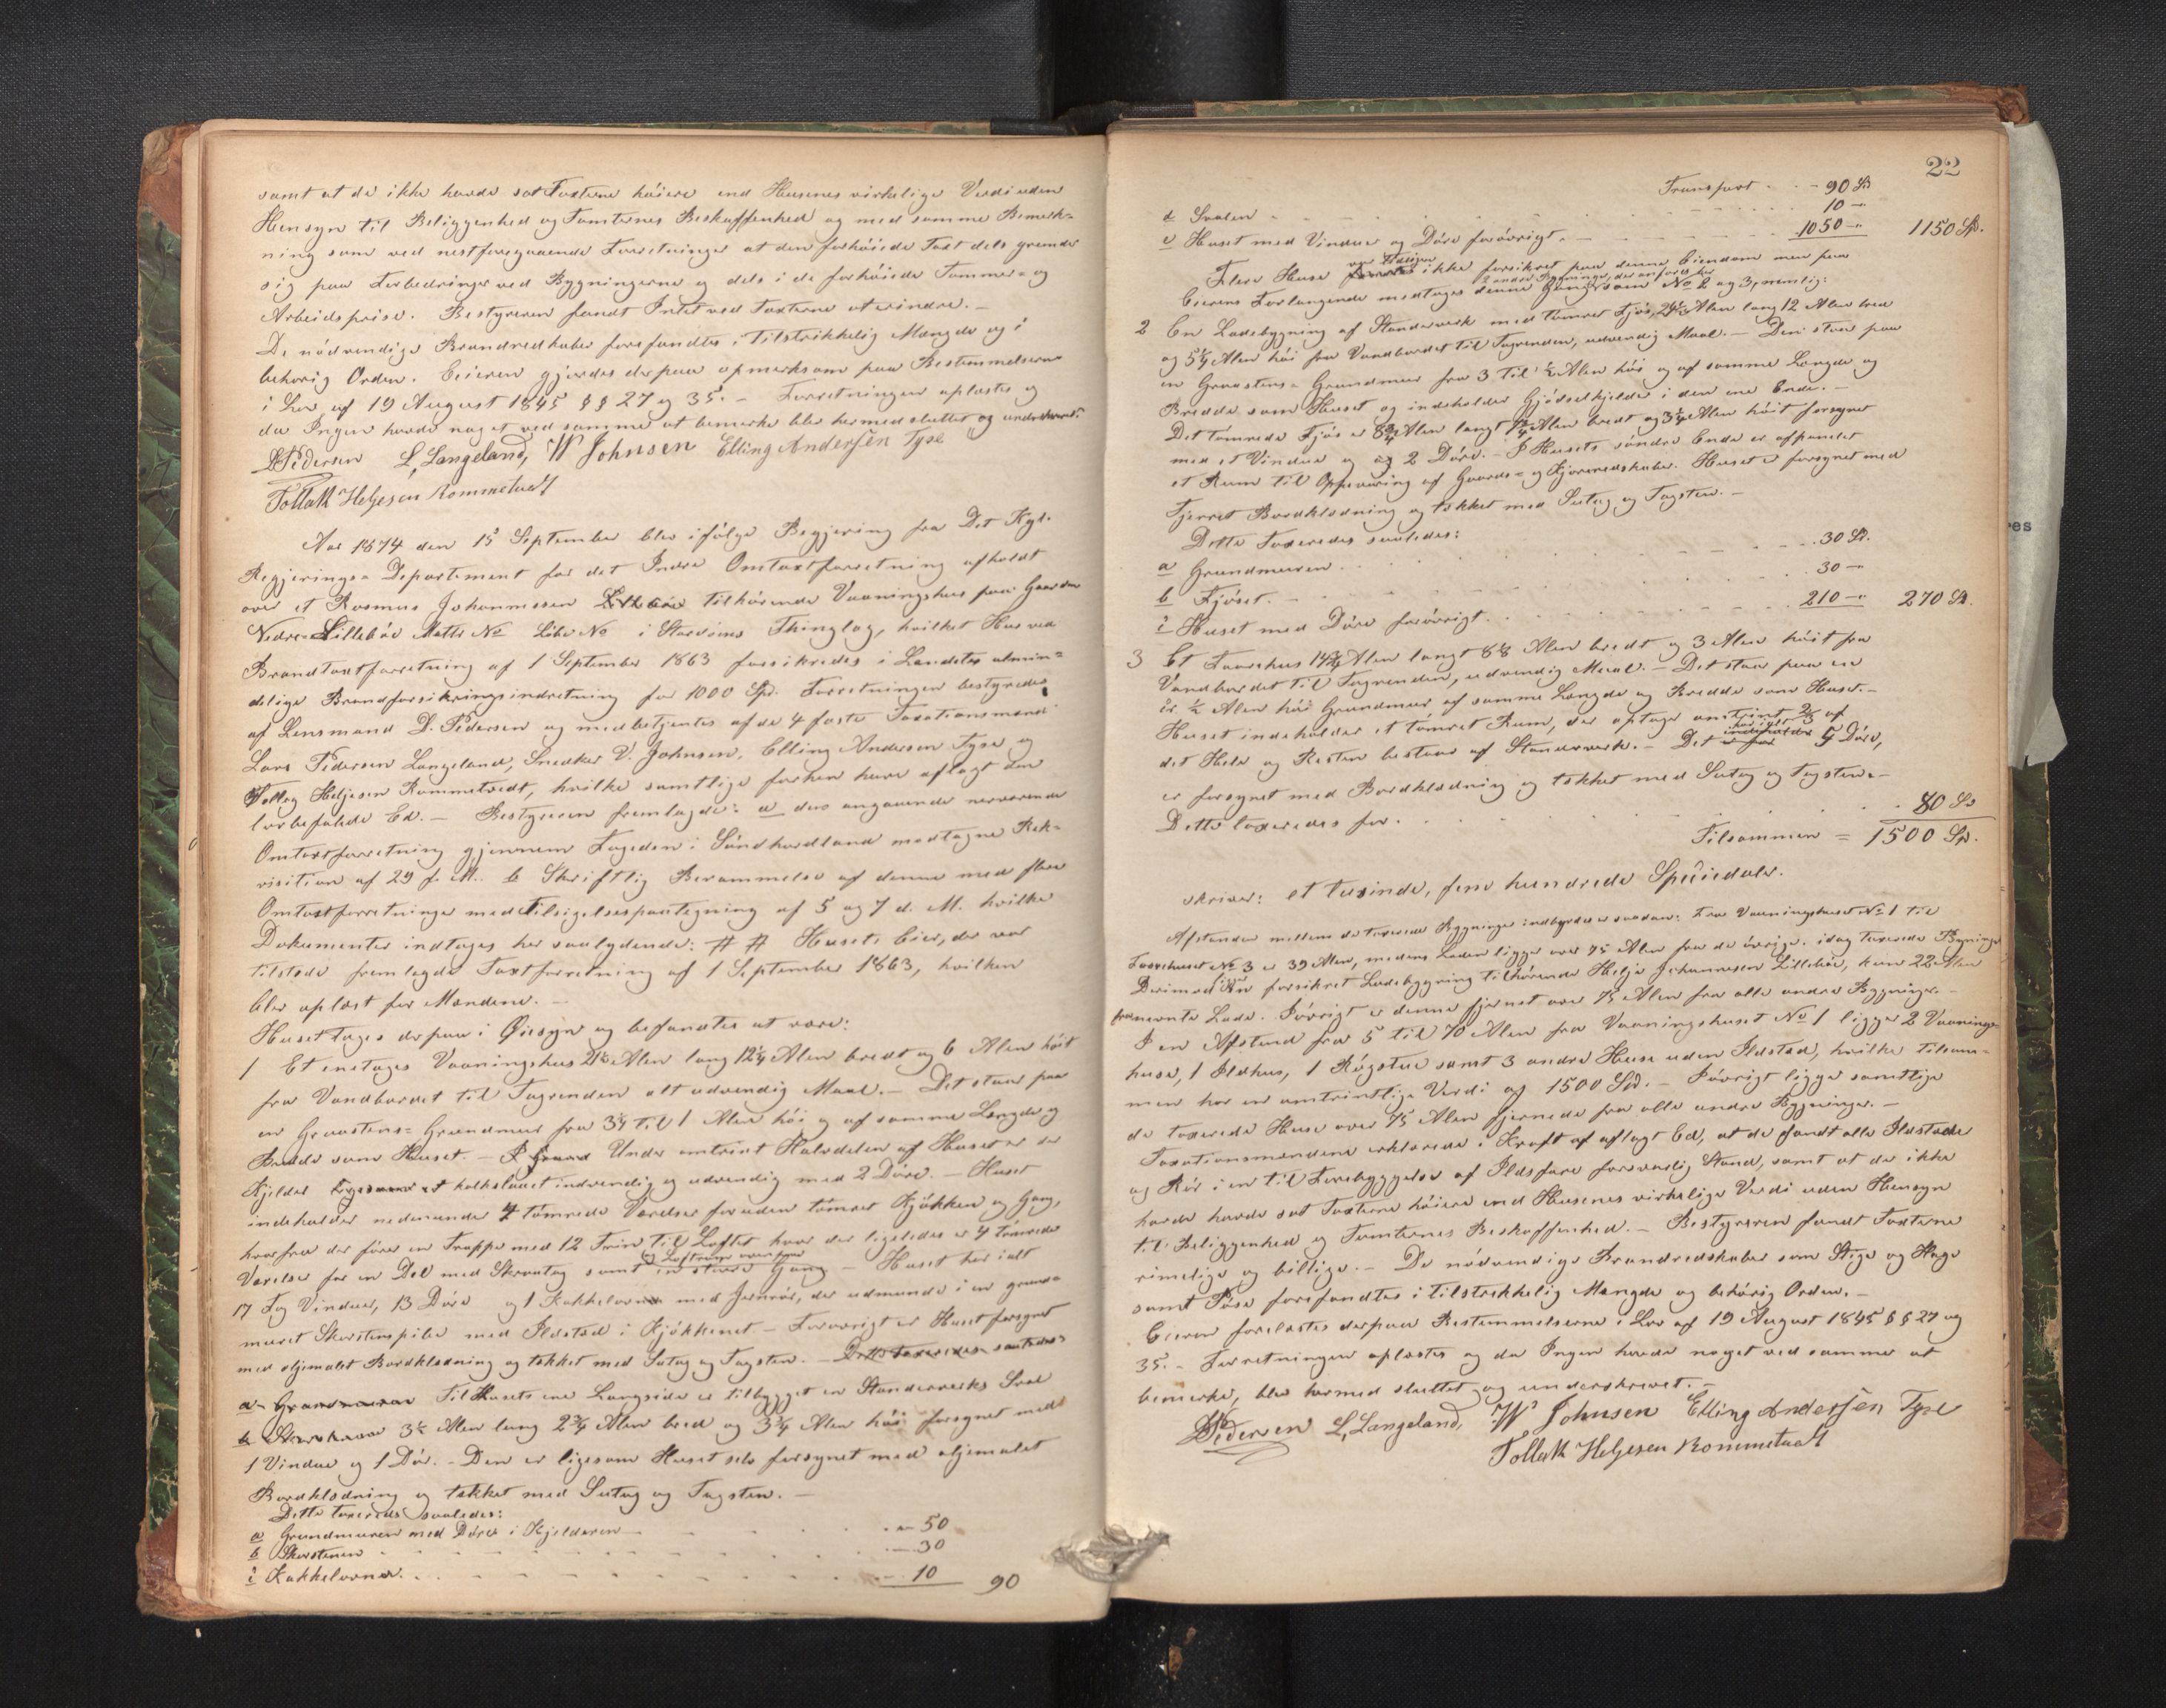 samt at de ikke havde sat Taxterne höiere end Husenes virkelige Verdi uden
Hensyn til Beliggenhed og Tomternes Beskaffenhed og med samme Bemerk-
ning som ved nestforegaaende Forretninger at den forhöiede Taxt dels grunder
sig paa Forbedringer ved Bygningerne og dels i de forhöiede Tommer- og
Arbeidspriser. Bestyreren fandt Intet ved Taxterne at erindre. -
De nödvendige Brandredskaber forefandtes i tilstrækkelig Mængde og i
behørig Orden. Eieren gjordes derpaa opmerksom paa Bestemmelserne
i Lov af 19 August 1845 §§ 27 og 35. - Forretningen oplæstes og
da Ingen havde noget ved samme at bemerke blev hermed sluttet og underskrevet.
LPedersen L. Langeland, W Johnsen Elling Andersen Tyse
Tollak Helgesen Rommetvedt
Aar 1874 den 15 September blev ifölge Begjering fra Det Kgl.
Regjerings- Departement for det Indre Omtaxtforretning afholdt
over et Rasmus Johannessen tilhörende Vaaningshus paa Gaarden
Nedre-Lillebö Matr No Löbe No i Stordöens Thinglag, hvilket Hus ved
Brandtaxtforretning af 1 September 1863 forsikredes i Landets almin-
delige Brandforsikringsindretning for 1000 Spd. Forretningen bestyredes
af Lensmand L. Pedersen og medbetjentes af de 4 faste Taxationsmænd
Lars Pedersen Langeland, Snedker V. Johnsen, Elling Andersen Tyse og
Tollag Heljesen Rommetvedt, hvilke samtlige forhen have aflagt den
lovbefalede Ed. - Bestyreren fremlagde: a den angaaende nerværende
Omtaxtforretning gjennem Fogeden i Söndhordland modtagne Rek-
visition af 29 f. M. b Skriftlig Berammelse af denne med flere
Omtaxtforretninger med Tilsigelsespaategning af 5 og 7 d. M. hvilke
Dokumenter indtages her saalydende: # # Husets Eier, der var
tilstede fremlagde Taxtforretning af 1 September 1863, hvilken
blev oplæst for Mændene. -
Huset toges derpaa i Øiesyn og befandtes at være:
1 Et enetages Vaaningshus 21½ Alen lang 12¼ Alen bredt og 6 Alen höit
fra Vandbordet til Tagrenden alt udvendig Maal. - Det staar paa
en Graastens- Grundmur fra 3¼ til 1 Alen høi og af samme Længde og
Bredde som Huset. - Under omtrent Halvdelen af Huset er der
Kjelder kalkslaaet indvendig og udvendig med 2 Döre. - Huset
indeholder nedenunder 4 tömrede Værelser foruden tömret Kjökken og Gang,
hvorfra der förer en Trappe med 12 Trin til Loftet hvor der ligeledes er 4 tömrede
og Loftrum
Værelser for en Del med Skraatag samt en större Gang - Huset har ialt
17 Fag Vinduer, 13 Döre og 1 Kakkelovn med Jernrör, der udmunde i en grund-
muret Skorstenspibe med Ildsted i Kjökkenet. - Forövrigt er Huset forsynet
med oljemalet Bordklædning og tækket med Sutag og Tagsten. - Dette taxeredes saaledes:
a Grundmuren Til Husets ene Langside er tilbygget en Standerverks Sval
b 3½ Alen lang 2¾ Alen bred og 3¾ Alen höi forsynet med
1 Vindue og 1 Dör. - Den er ligesom Huset selv forsynet med oljemalet
Bordklædning og tækket med Sutag og Tagsten. -
Dette taxeredes saaledes:
a Grundmuren med Döre i Kjelderen - - - 50
b Skorstenen - - - 30
c Kakkelovnen - - - 10 90
22
Transport - - 90 Sp
d Svalen - - - 10 -"
e Huset med Vinduer og Döre forövrigt. - - - 1050 -" 1150 Sp.
var tidligere
Flere Huse ikke forsikret paa denne Eiendom men paa
2 andre Bygninger, der anföres her
Eierens Forlangende medtages denne Gang som No 2 og 3, nemlig:
2 En Ladebygning af Standerverk med tömret Fjös, 24½ Alen lang 12 Alen bred
og 5¼ Alen höi fra Vandbordet til Tagrenden, udvendig Maal. - Den staar paa
en Graastens- Grundmur fra 3 til ½ Alen höi og af samme Længde og
Bredde som Huset og indeholder Gjödselkjelder i den ene Ende. -
Det tömrede Fjös er 8¾ Alen langt Alen bredt og 3¼ Alen höit forsynet
med et Vindue og og 2 Döre. - I Husets söndre Ende er afpanelet
et Rum til Opbevaring af Gaards- og Kjöreredskaber. Huset er forsynet med
tjerret Bordklædning og tækket med Sutag og Tagsten. -
Dette taxeredes saaledes:
a Grundmuren - - - 30 Sp.
b Fjöset. - - - 30 -"
c Huset med Döre forövrigt. - - - 210 -" 270 Sp.
3 Et Taarehus 14¾ Alen langt 8⅛ Alen bredt og 3 Alen höit fra
Vandbordet til Tagrenden, udvendig Maal. - Det staar paa en
½ Alen höi Grundmur af samme Længde og Bredde som Huset. -
Huset indeholder et tömret Rum, der optager omtrent ⅔ af
har ialt
det Hele og Resten bestaar af Standerverk. - Det indeholder 5 Döre,
er forsynet med Bordklædning og tækket med Sutag og Tagsten. -
Dette taxeredes for. - - - 80 Sp
Tilsammen = 1500 Sp.
skriver: et tusinde, fem hundrede Speciedaler.
Afstanden mellem de taxerede Bygninger indbyrdes er saadan: Fra Vaaningshuset No 1 til
Taarehuset No 3 er 39 Alen, medens Laden ligger over 75 Alen fra de övrige idag taxerede Bygninger
Derimod forsikret Ladebygning tilhörende Helje Johannesen Lillebö, kun 22 Alen
fra nævnte Lade. Iövrigt er denne fjernet over 75 Alen fra alle andre Bygninger. -
I en Afstand fra 5 til 70 Alen fra Vaaningshuset No 1 ligger 2 Vaanings-
huse, 1 Ildhus, 1 Rögstue samt 3 andre Huse uden Ildsted, hvilke tilsam-
men har en omtrentlig Verdi af 1500 Spd. - Iövrigt ligger samtlige
de taxerede Huse over 75 Alen fjernede fra alle andre Bygninger. -
Taxationsmændene erklærede i Kraft af aflagt Ed, at de fandt alle Ildsteder
og Rör i en til Forebyggelse af Ildsfare forsvarlig Stand, samt at de ikke
havde havde sat Taxterne höiere end Husenes virkelige Verdi uden Hensyn
til Beliggenhed og Tomternes Beskaffenhed. - Bestyreren fandt Taxterne
rimelige og billige. - De nødvendige Brandredskaber som Stige og Hage
samt Pöse forefandtes i tilstrekkelig Mængde og behörig Orden. -
Eieren forelæstes derpaa Bestemmelserne i Lov af 19 August 1845 §§ 27 og
35. - Forretningen oplæstes og da Ingen havde noget ved samme at
bemerke, blev hermed sluttet og underskrevet. -
LPedersen L. Langeland, W Johnsen Elling Andersen Tyse
Tollak Helgesen Rommetvedt
es